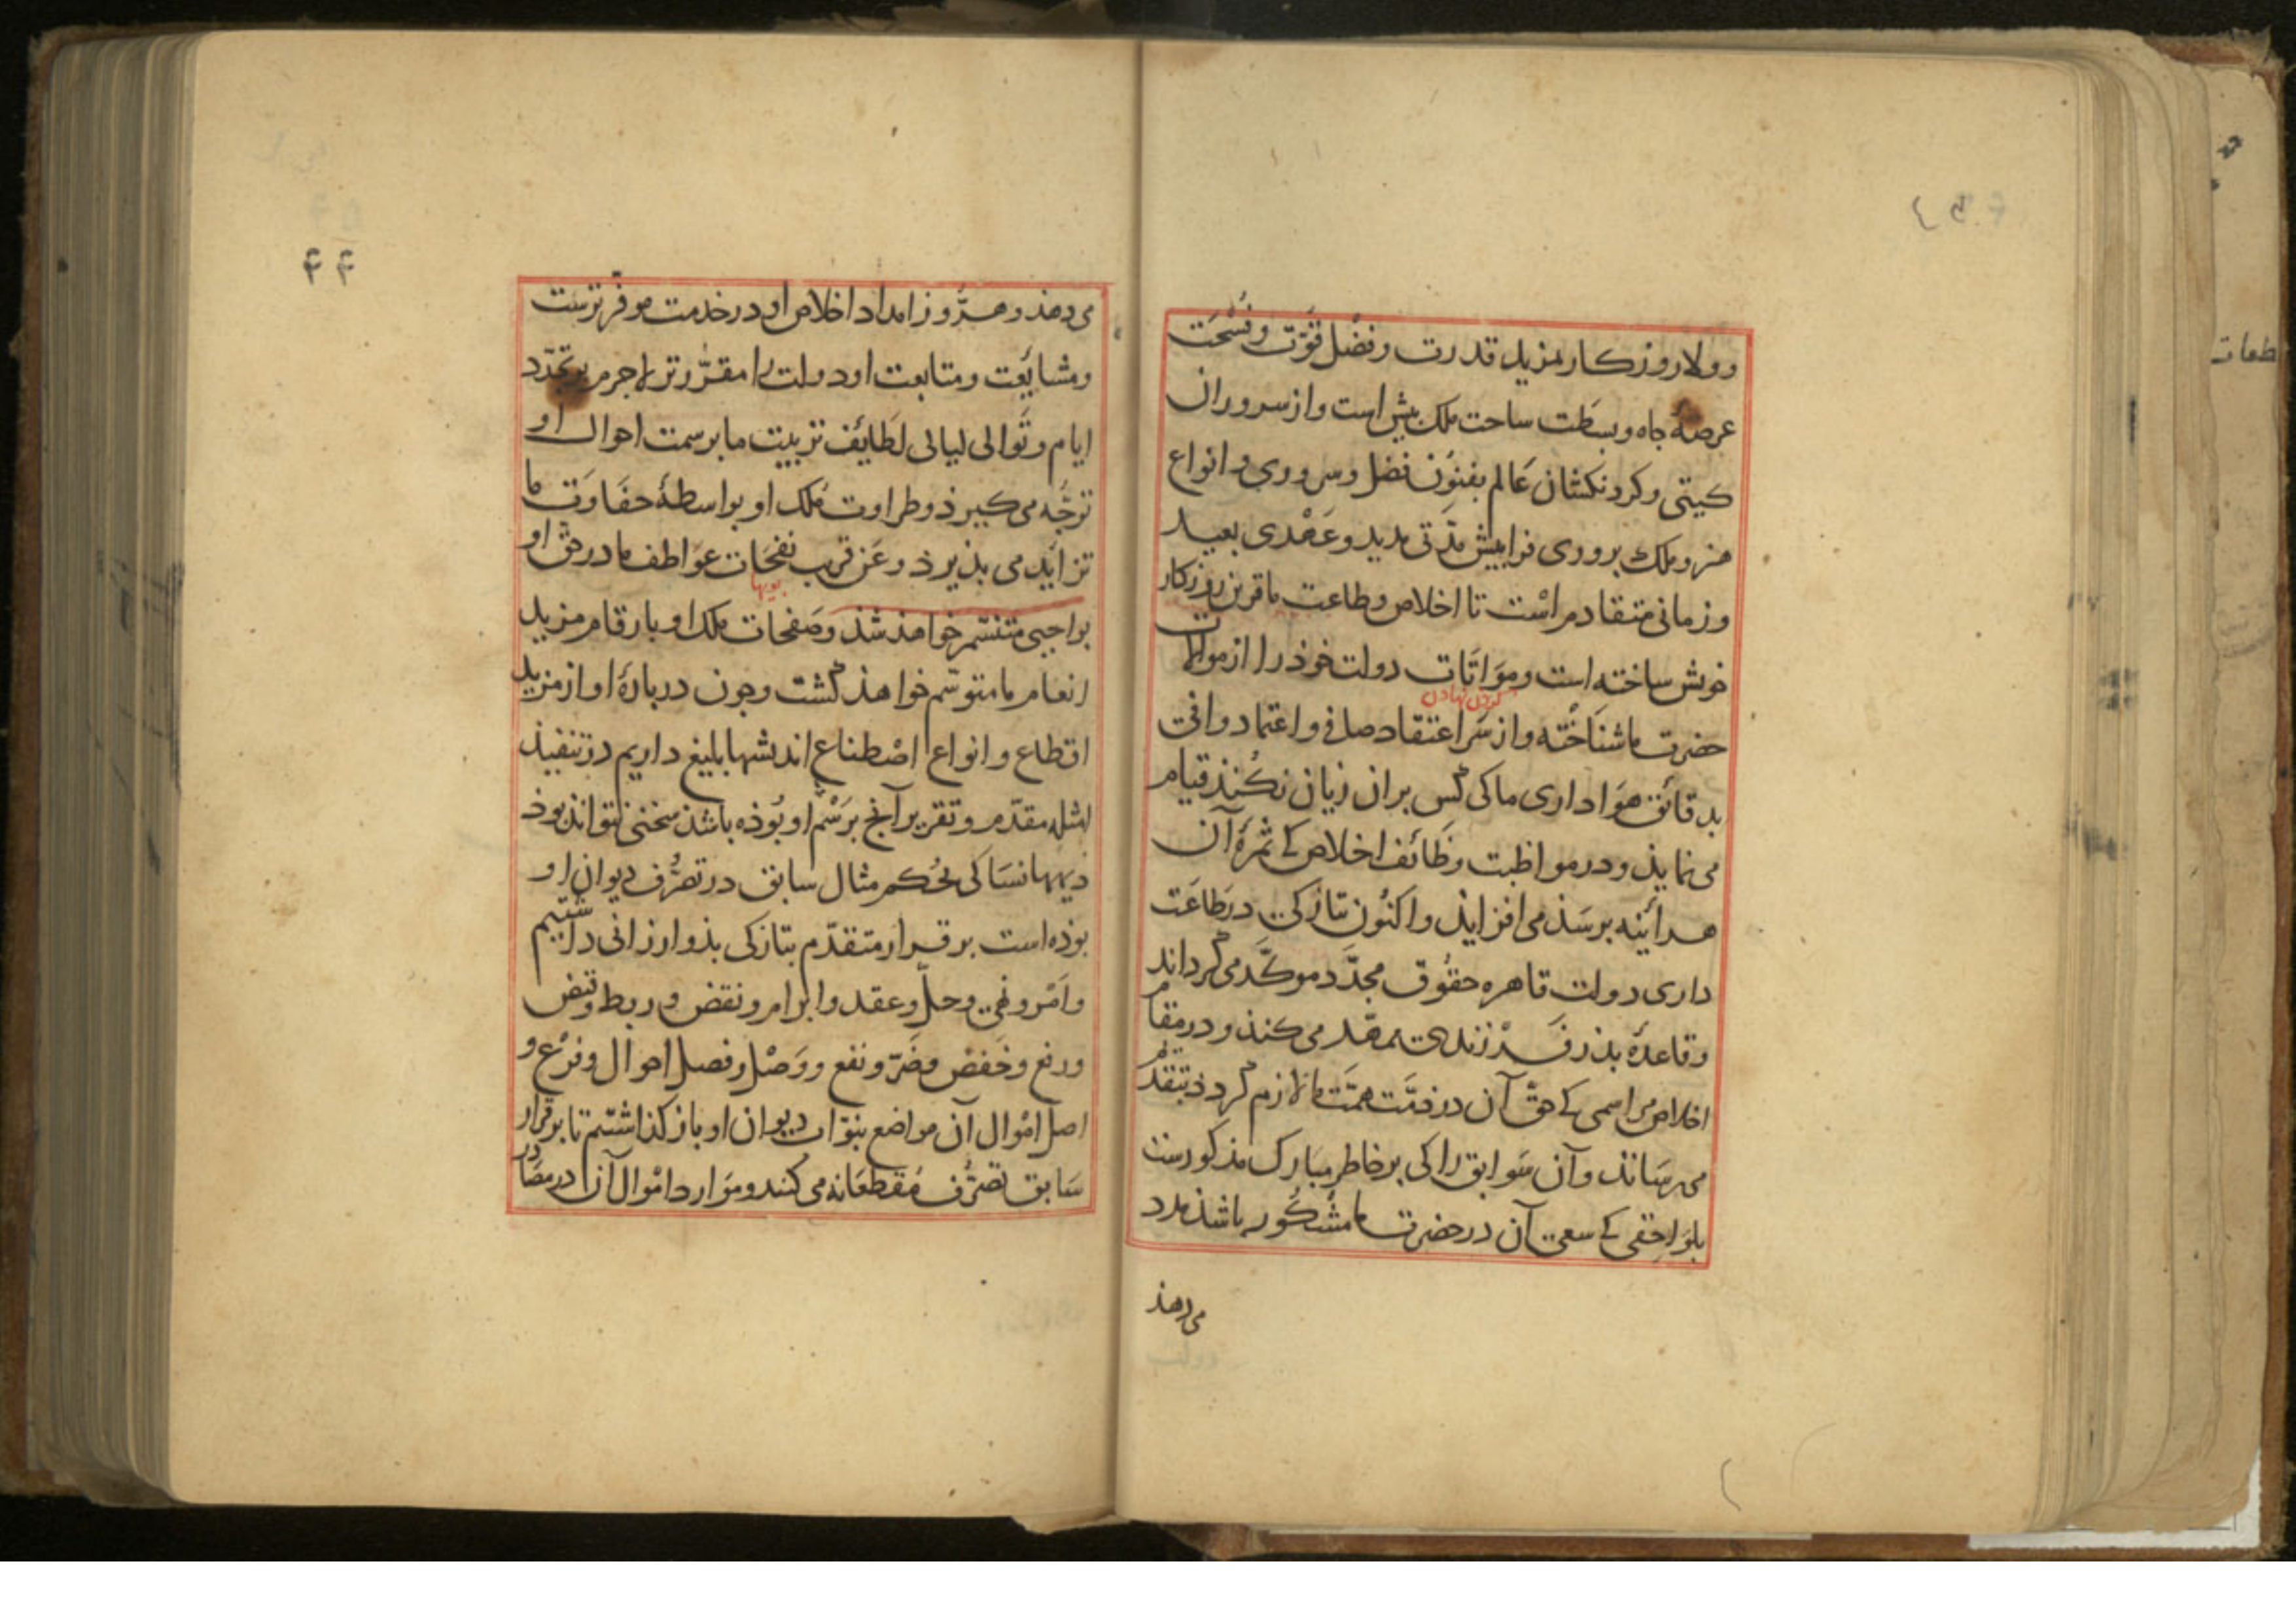 وولاروزکار مزید قدرت وفضل قوّت وفسْحَت
عرصهٔ جاه وبسَطت ساحت ملک بیش است واز سروران
کیتی وکردنکشان عَالم بفنوُن فضل وسروری وانواع
هنر وملک بروری فرابیش مدّتی مدید وعَهْدی بعید
وزمانی متقادم راسْت تا اخلاص وطاعت ما قرین روزکار
خوش ساخته است وموَاتَات دولت خوذ را از موالات
کردن نهادن
حضرت ما شناخته واز سَر اعتقاد صافی واعتماد وافی
بدقائق هوَاداری ما کی کس بران زیان نکُنذ قیام
می نمایذ ودر مواظبت وظَائف اخلاص کے ثمرهٔ آن
هرآئینه برسَذ می افزایذ واکنُون بتازکی در طَاعَت
داری دولت قاهره حقوُق مجدَّد موکَّد می کرداند
وقاعدهٔ بذر فَرْزندی ممهّد می کنذ ودر مقام
اخلاص مراسمی کے حقّ آن در ذمَّت همَّت ما لازم کردذ بتقدّم
می رسَاند وآن سَوابق را کی بر خاطر مبارک مذکورست
بلوَاحِقی کے سعی آن در حضرت ما مشْکُور باشذ مدد
می دهذ
۴۴
می دهذ وهر رُوز امداد اخلاص او در خدمت موفرترست
ومشایَعت ومتابعت او دولت را مقرَّرتر لاجرم بر تجدّد
ایام وتَوالی لیالی لَطایُف تربیت ما بر سمت احوال او
توجُّه می کیرذ وطراوت مُلک او بواسطهٔ حفَاوَت ما
تزایُد می بذیرذ وعَن قریب نفحَات عوَاطف ما در حقّ او
بویها
بواجبی متنسّم خواهذ شذ وصَفحات ملک او بارقام مزید
انعام ما متوسّم خواهذ کشت وجون دربارهٔ او از مزید
اقطاع وانواع اصْطناع اندیشها بلیغ داریم در تنفیذ
امثلهٔ مقدّم وتقریر آنج برَسْم او بُوذه باشذ سخنی نتواند بوذ
دیهها نسَا کی بحُکم مثال سابق در تصَرُّف دیوان او
بوذه است بر قرار متقدّم بتازکی بذو ارزانی داشتیم
وامْر ونهی وحلّ وعقد وابرام ونقض وربط وقبض
ورفع وخَفض وضَرّ ونفع ووَصْل وفصل احوال وفرْع و
اصل امْوال آن مواضع بنوّاب دیوان او باز کذاشتیم تا بر قرار
سَابق تصَرُّف مُقطعَانه می کنند وموَارد امْوال آن در مصَادر